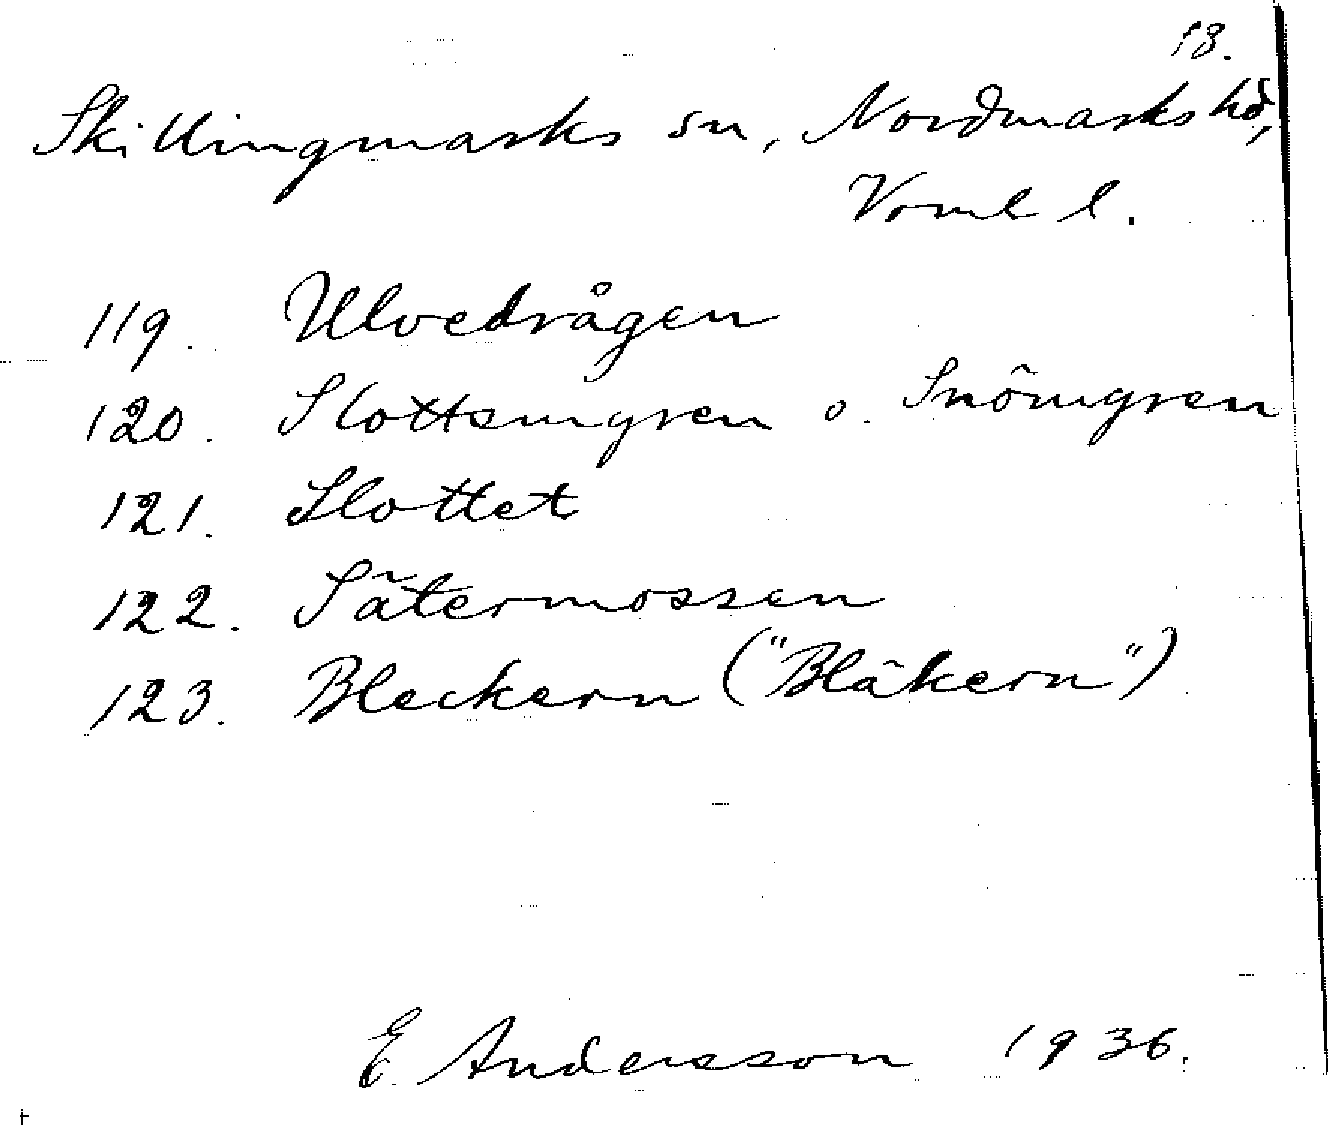 13.
Skillingmarks sn, Nordmarks hd,
Vrml l.
119. Ulvedrågen
120. Slottsmyren o. Snömyren
121. Slottet
122. Sätermossen
123. Bleckern ("Bläkern")
E Andersson 1936.